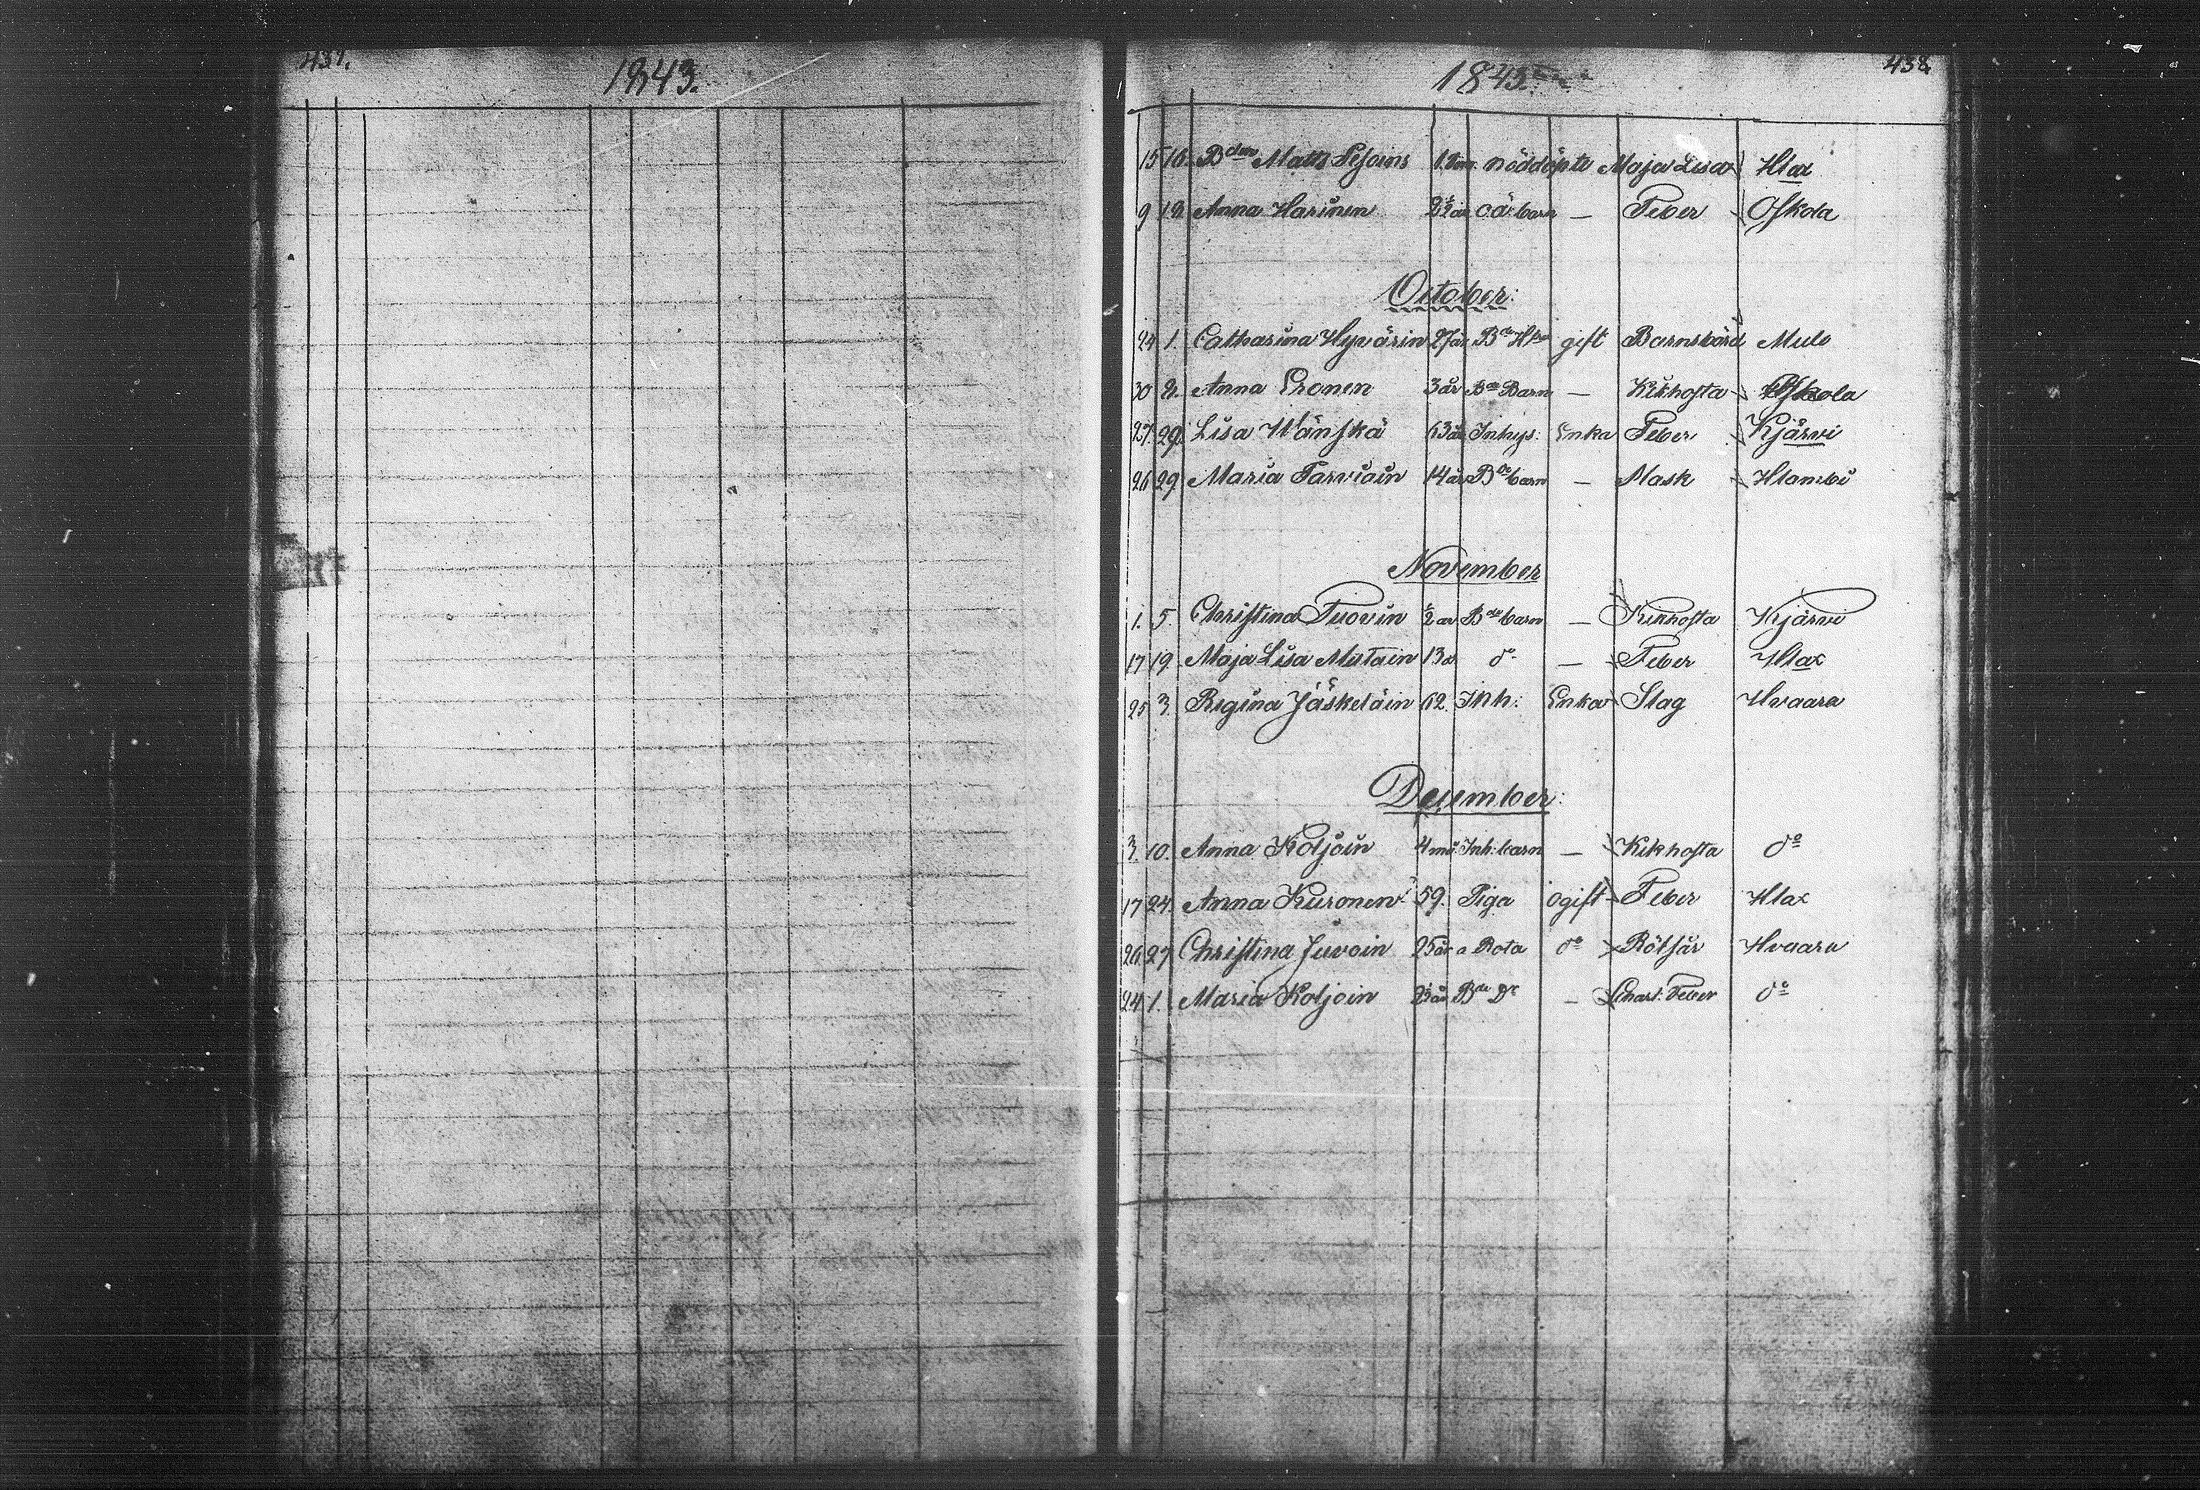 437.
1843.
438
1843.
15 16. Bden Matts Pesoins 1. tim. nöddöpte Maja Lisa Hlax
9 12 Anna Harinen 2½ år O.ä. barn — Feber Oskola
October:
24 1. Catharina Hyvärin 27 år Bde Hu gift Barnsbörd Mulo
30 2. Anna Eronen 3 år Bde Barn — Kikhosta Oskola
27. 29. Lisa Wänskä 63 år Inhys: Enka Feber Kjärvi
26 29 Maria Tarviain 14 år Bde barn — Mask Hlambi
November
1. 5. Christina Tuovin ½ år Bde barn — Kikhosta Kjärvi
17 19. Maja Lisa Mustain 13 d do — Feber Hlax
25 3. Regina Jäskeläin 62. Inh: Enka Slag Hvaara
December:
3. 10. Anna Koljoin 4 må Inh: barn — Kikhosta do
17 24. Anna Kuronen 59. Piga ogift Feber Hlax
26 27 Christina Juvoin 25 år a Rota do Rötfår Hvaara
24 1. Maria Koljoin 2½ år Bde Dr — Scharl: Feber do